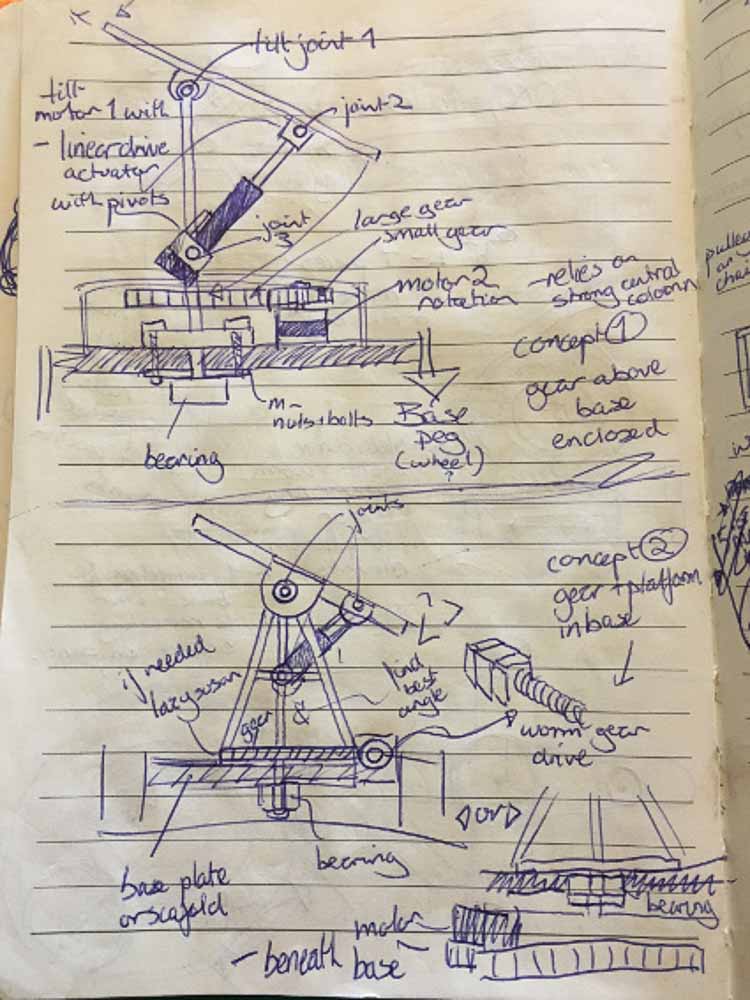 tilt joint 1
tilt
motor 1 with
- linear drive
actuator
with pivots
joint 2
joint
3
large gear
small gear
motor 2
rotation
- relies on
strong central
coloumn
concept 1
gear above
base
enclosed
m-
nuts+bolts
bearing
Base
peg
(wheel)
?
joints
concept 2
gear + platform
in base
?
if needed
lazy susan
gear
&
find
best
angle
!
worm gear
drive
or
bearing
base plate
or scafold
bearing
motor
- beneath
base
pulley
or
chain